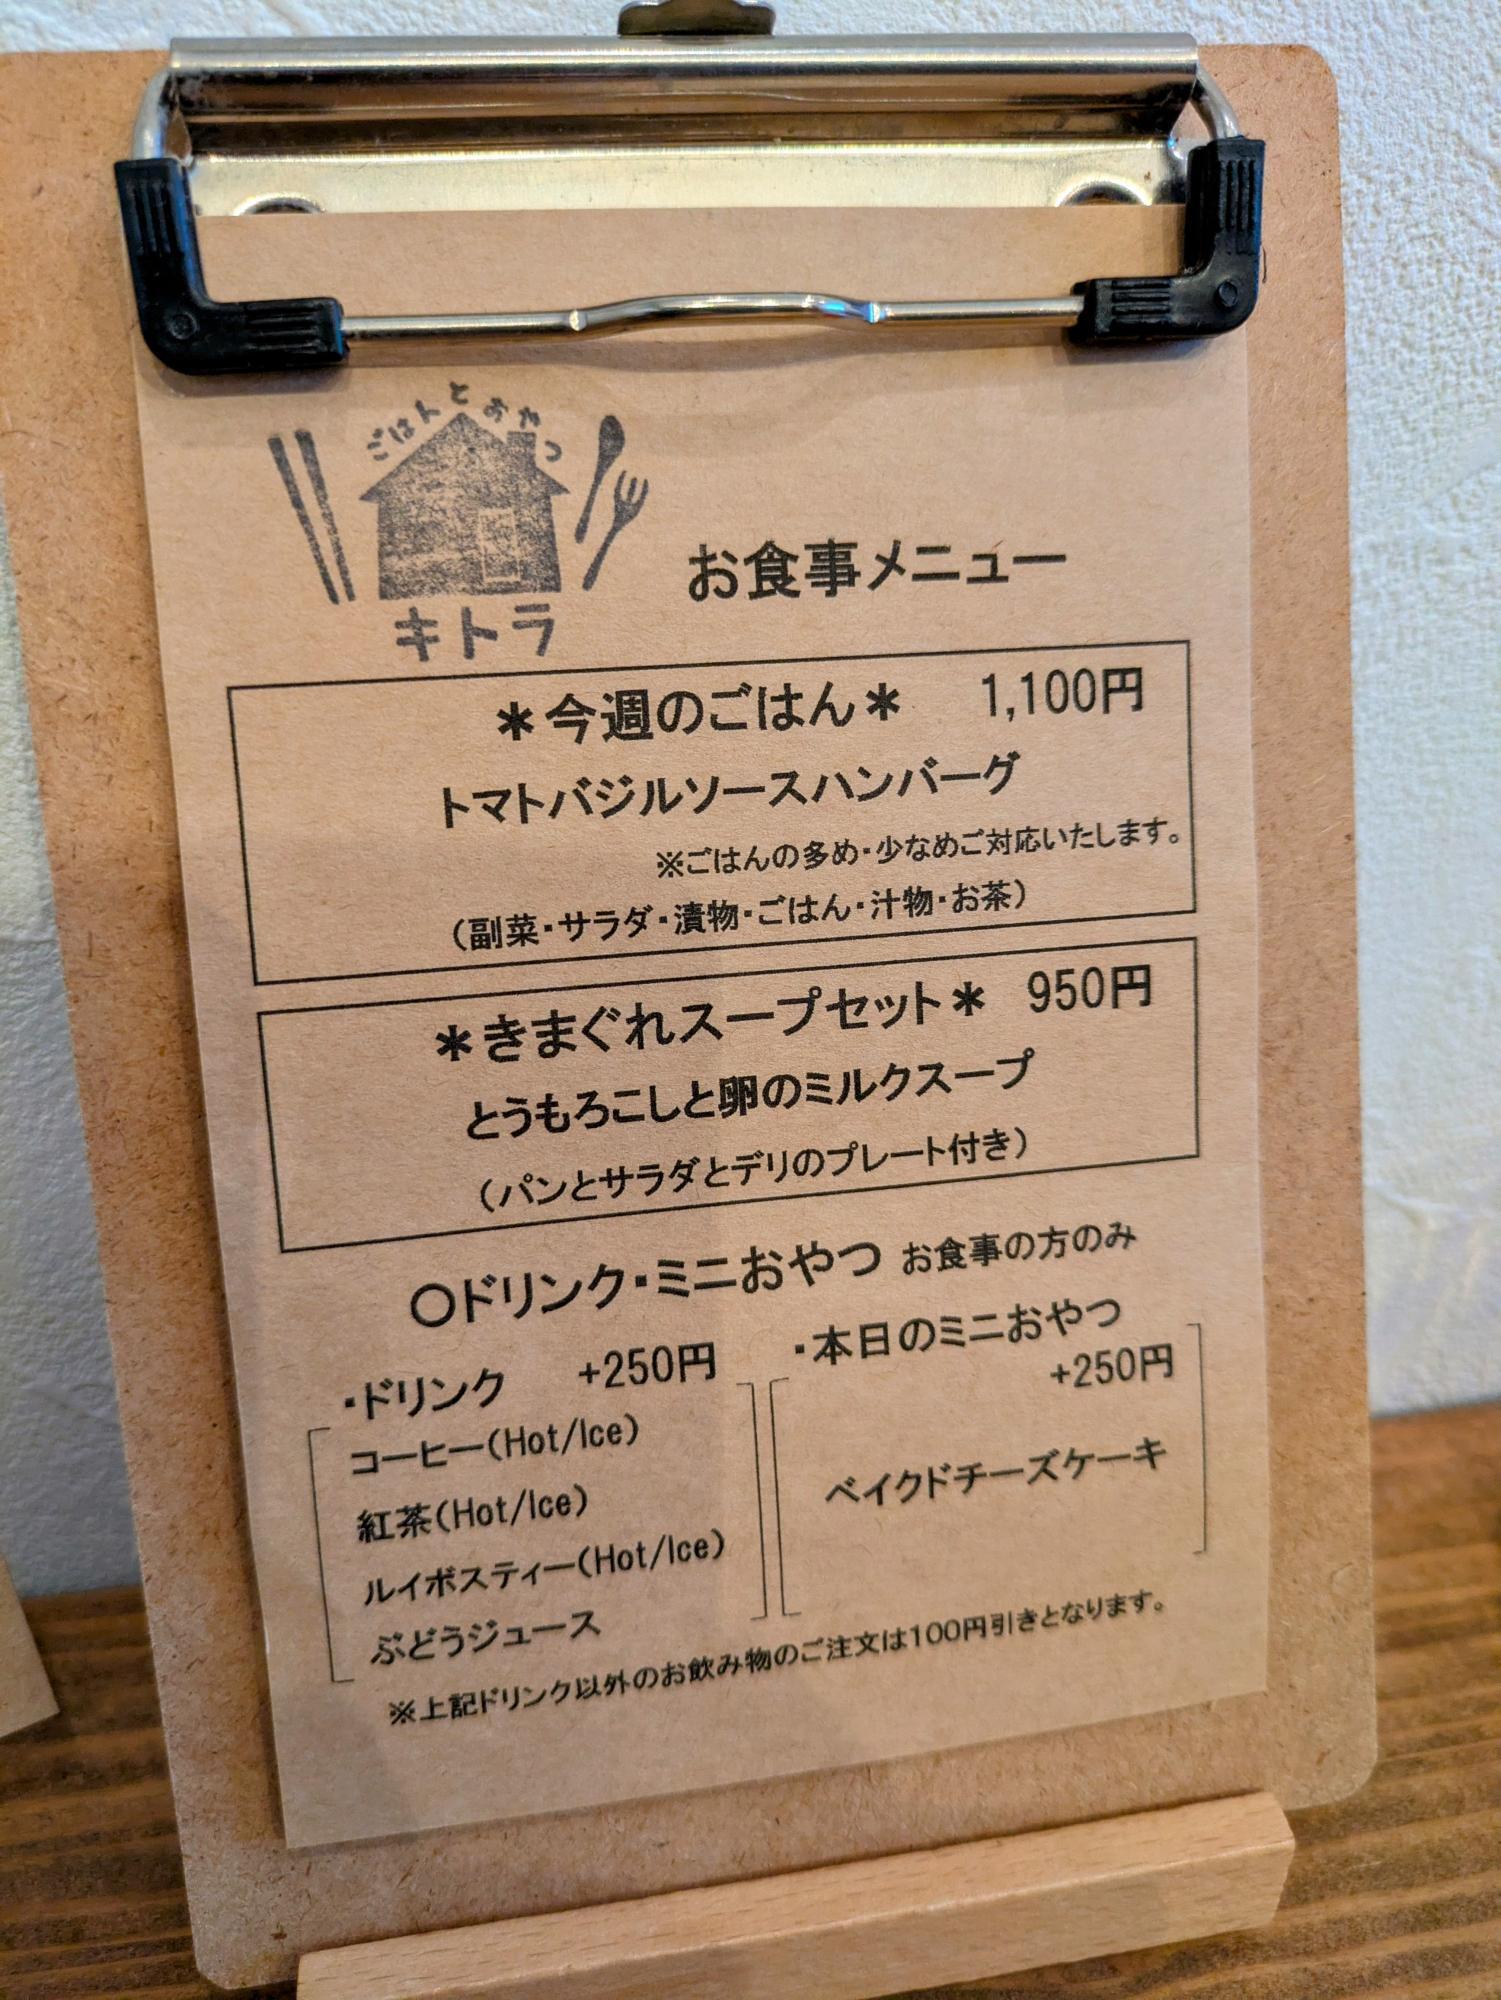 ごはんとおやつ
キトラ
お食事メニュー
＊今週のごはん＊ 1,100円
トマトバジルソースハンバーグ
※ごはんの多め・少なめご対応いたします。
（副菜・サラダ・漬物・ごはん・汁物・お茶）
＊きまぐれスープセット＊ 950円
とうもろこしと卵のミルクスープ
（パンとサラダとデリのプレート付き）
〇ドリンク・ミニおやつ お食事の方のみ
・ドリンク +250円
コーヒー(Hot/Ice)
紅茶(Hot/Ice)
ルイボスティー(Hot/Ice)
ぶどうジュース
・本日のミニおやつ
+250円
ベイクドチーズケーキ
※上記ドリンク以外のお飲み物のご注文は100円引きとなります。